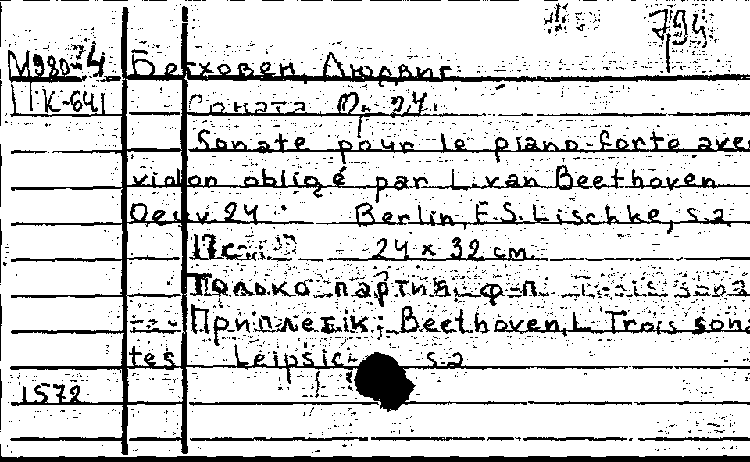 794
М980-4 Бетховен, Людвиг
ПК-641 Соната Op. 24.
Sonate pour le piano-forte avec
violon obligé par L. van Beethoven
Oeuv. 24 Berlin, F.S. Lischke, s.a
17 с. 24 x 32 см.
Только партия ф-п.
Приплетён: Beethoven, L. Trois sona
tes Leipsic s.a
1572